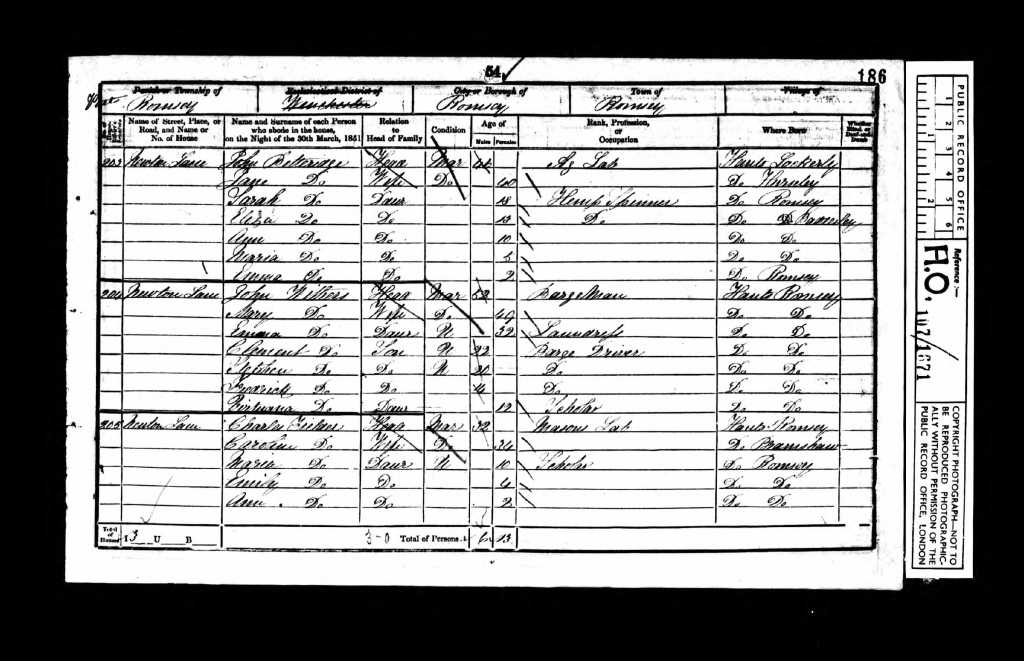 54
186
Parish or Township of
Ecclesiastical District of
City or Borough of
Town of
Village of
Part Romsey
Winchester
Romsey
Romsey
Name of Street, Place, or Road, and Name or No. of House
Name and Surname of each Person who abode in the house, on the Night of the 30th March, 1851
Relation to Head of Family
Condition
Age of
Males
Females
Rank, Profession, or Occupation
Where Born
Whether Blind, or Deaf and Dumb
203 Newton Lane John Betteridge Head Mar Ag Lab Hants Lockerly
Jane Do Wife Do 40 Do
Sarah Do Daur 18 Hemp Spinner Do Romsey
Eliza Do Do 13 Do Do
Ann Do Do 10 Do Do
Maria Do Do 5 Do Do
Emma Do Do 2 Do Romsey
204 Newton Lane John Withers Head Mar 52 Barge Man Hants Romsey
Mary Do Wife Do 49 Do Do
Emma Do Daur U Laundress Do Do
Clement Do Son U 22 Barge Driver Do Do
Stephen Do Do U 20 Do Do Do
Fredrick Do Do 14 Do Do Do
Do Daur 12 Scholar Do Do
205 Newton Lane Charles Head Mar 32 Masons Lab Hants Romsey
Caroline Do Wife Do 34 Do Bramshaw
Maria Do Daur U 10 Scholar Do Romsey
Emily Do Do 4 Do Do
Ann Do Do 2 Do Do
Total of Houses I 3 U B
3-0 Total of Persons 6 13
PUBLIC RECORD OFFICE
1 2 3 4 5 6
1 2
Reference:-
H.O. 107/1671
COPYRIGHT PHOTOGRAPH—NOT TO
BE REPRODUCED PHOTOGRAPHIC-
ALLY WITHOUT PERMISSION OF THE
PUBLIC RECORD OFFICE, LONDON